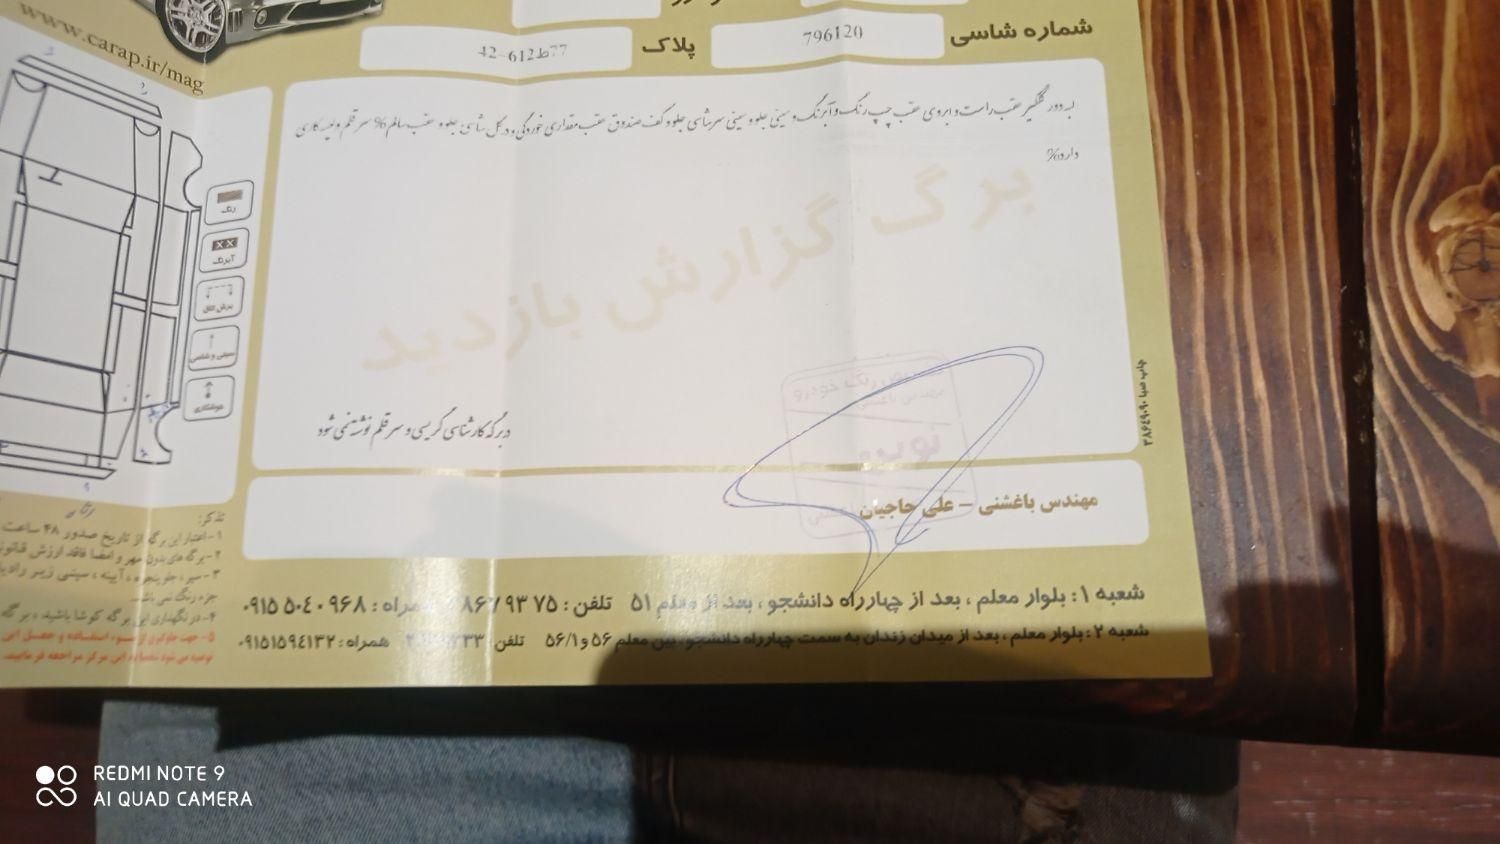 www.carap.ir/mag
شماره شاسی
796120
پلاک
77ط612-42
لبه دور گلگیر عقب راست و ابروی عقب چپ رنگ و آبرنگ و سینی جلو و سینی سرشاسی جلو و کف صندوق عقب مقداری خوردگی و در کل شاسی جلو و عقب سالم% سر قلم و لیسه کاری
دارد%
برگ گزارش بازدید
رنگ
XX
آبرنگ
برش اتاق
سینی و شاسی
جوشکاری
در برگه کارشناسی گریسی و سر قلم نوشته نمی شود
نوین
مهندس باغشنی – علی حاجیان
چاپ صبا ۳۸۶۴۹۰۹۰
تذکر:
۱- اعتبار این برگه از تاریخ صدور ۴۸ ساعت
۲- برگه های بدون مهر و امضا فاقد ارزش
۳- سپر، جلو پنجره، آیینه، سینی زیر
جزء رنگ نمی باشد.
۴- در نگهداری این برگه کوشا باشید،
۵- جهت جلوگیری از سوء استفاده و جعل این
توصیه می شود این مرکز مراجعه فرمایید.
شعبه ۱: بلوار معلم ، بعد از چهارراه دانشجو ، بعد از معلم ۵۱ تلفن: همراه: ۰۹۱۵۵۰۴۰۹۶۸
شعبه ۲: بلوار معلم ، بعد از میدان زندان به سمت چهارراه دانشجو، بین معلم ۵۶ و ۵۶/۱ تلفن همراه: ۰۹۱۵۱۵۹۴۱۳۲
REDMI NOTE 9
AI QUAD CAMERA